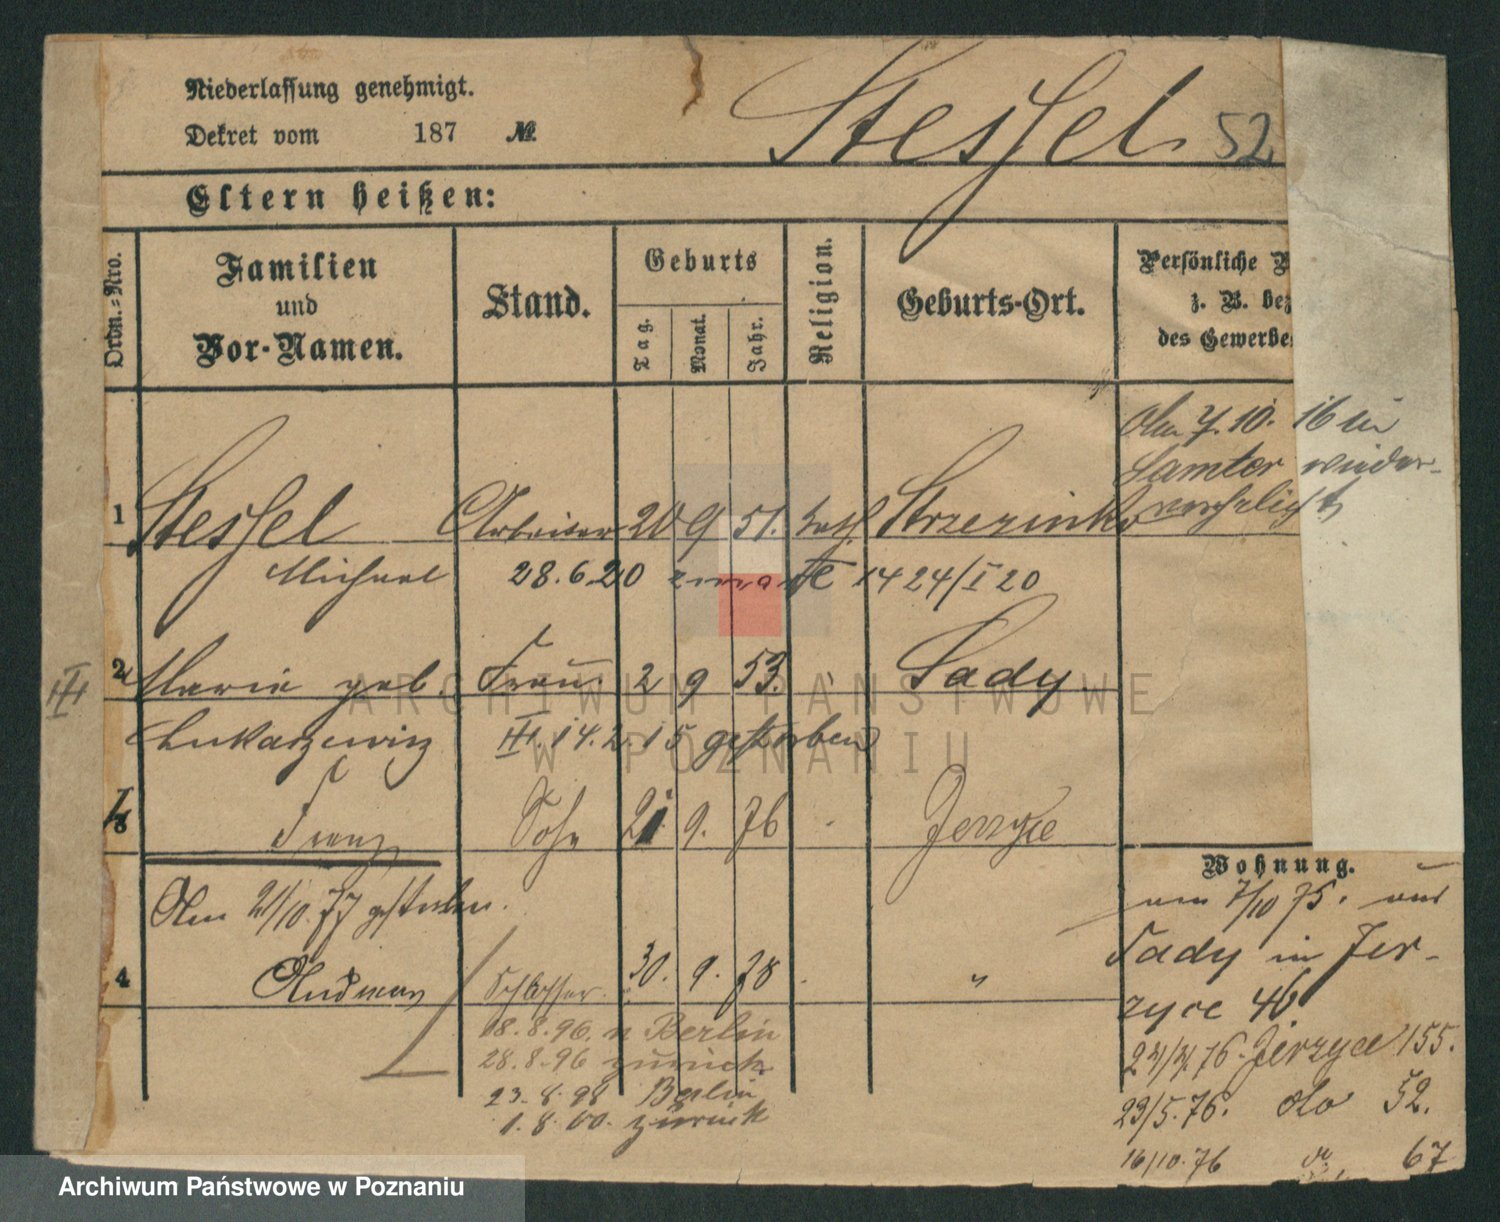 Niederlassung genehmigt.
Dekret vom 187 №
Stessel 52
Eltern heißen:
Ordn.-Nro.
Familien
und
Vor-Namen.
Stand.
Geburts
Tag.
Monat.
Jahr.
Religion.
Geburts-Ort.
Persönliche
z. B. bez
des Gewerbe
Am 7.10.16 in
Samter wieder-
verehelicht
1 Stessel Arbeiter 20 9 51. kath. Strzezinko
Michael 28.6.20 14 24/I 20
2 Marie geb. Frau 2 9 53. Sady
Lukaszewicz III. 14.2.15 gestorben
III
3 Franz Sohn 21 9. 76 Jerzyce
Am 21/10.77 gestorben.
4 Andreas Schlosser. 30. 9. 78 "
18.8.96. n Berlin
28.8.96 zurück
23.8.98 Berlin
1.8.00. zurück
Wohnung.
am 7/10 75. aus
Sady in Jer-
zyce 46
24/4.76. Jerzyce 155.
29/5.76. dto 52.
16/10.76 67
ARCHIWUM PAŃSTWOWE
W POZNANIU
Archiwum Państwowe w Poznaniu